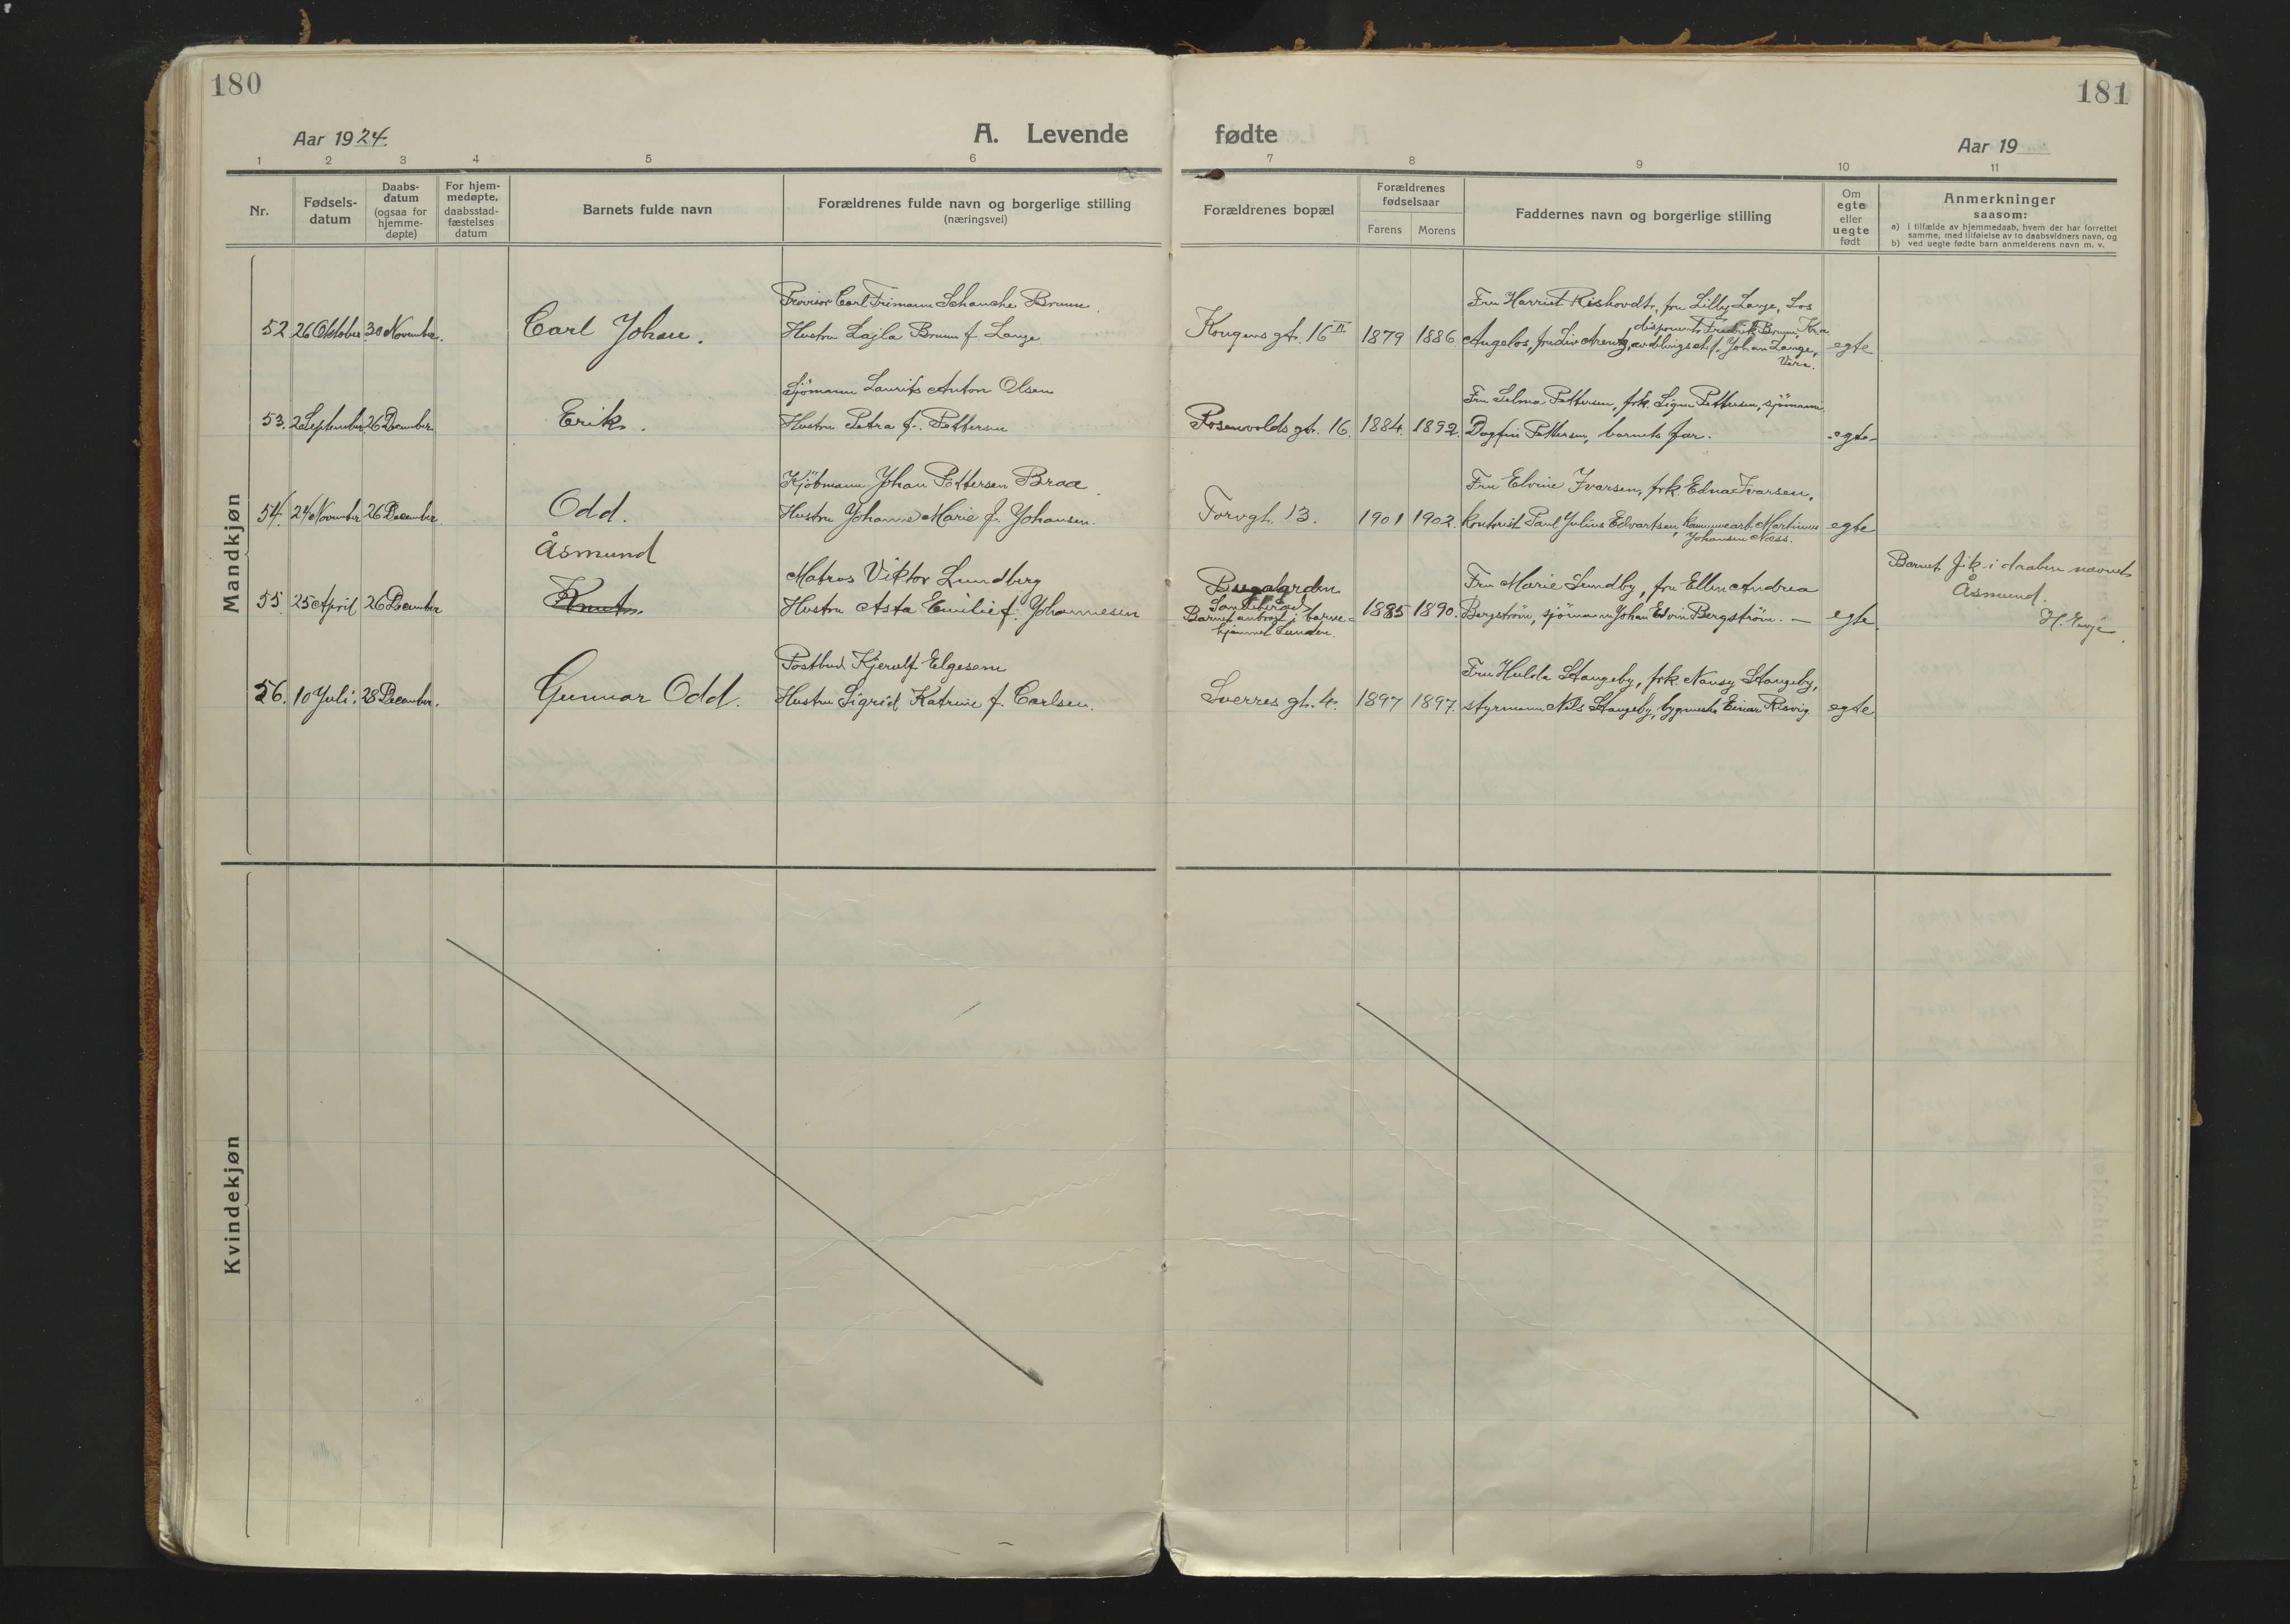 180
Aar 1924.
A. Levende
1 2 3 4 5 6
Nr.
Fødsels-
datum
Daabs-
datum
(ogsaa for
hjemme-
døpte)
For hjem-
medøpte,
daabsstad-
fæstelses
datum
Barnets fulde navn
Forældrenes fulde navn og borgerlige stilling
(næringsvei)
Mandkjøn
Provisor Carl Frimann Schanche Bruun
52 26 Oktober 30 November. Carl Johan. Hustru Lajla Bruun f. Lange
Sjömann Laurits Anton Olsen
53. 2 September 26 December Erik. Hustru Petra f. Pettersen
Kjöbmann Johan Pettersen Braa
54. 24 November 26 December Odd. Hustru Johanne Marie f. Johansen.
Åsmund
Matros Viktor Lundberg
55. 25 April 26 December Knut. Hustru Asta Emilie f. Johannesen
Postbud Kjerulf Elgesem
56. 10 Juli. 28 December. Gunnar Odd. Hustru Sigrid Katrine f. Carlsen.
Kvindekjøn
181
fødte
Aar 19
7 8 9 10 11
Forældrenes bopæl
Forældrenes
fødselsaar
Farens Morens
Faddernes navn og borgerlige stilling
Om
egte
eller
uegte
født
Anmerkninger
saasom:
a) i tilfælde av hjemmedaab, hvem der har forrettet
samme, med tilføielse av to daabsvidners navn, og
b) ved uegte fødte barn anmelderens navn m. v.
Fru Harriet Rishovdt, fru Lilly Lange, Los
disponent Fredrik Bruun, Kra
Kongens gt. 16 II 1879 1886 Angelos, fru Liv Arentz, avdelingschef Johan Lange, egte
Fru Selma Pettersen, frk. Signe Pettersen, sjömann
Rosenvolds gt. 16. 1884. 1892. Dagfin Pettersen, barnets far. egte
Fru Elvine Ivarsen, frk. Edna Ivarsen,
Torvgt. 13. 1901 1902. kontorist Paul Julius Edvartsen, kommunearb. Martinius egte
Johansen Næss.
Barnet fik i daaben navnet
Åsmund.
Fru Marie Sundby, fru Ellen Andrea
Bugården
Barnet anbragt i barne-
hjemmet Lunden.
1885 1890. Bergström, sjömann Johan Edvin Bergström. — egte.
Fru Hulda Stangeby, frk. Nansy Stangeby,
Sverres gt. 4. 1897 1897. styrmann Nils Stangeby, bygmester Einar Risvig egte